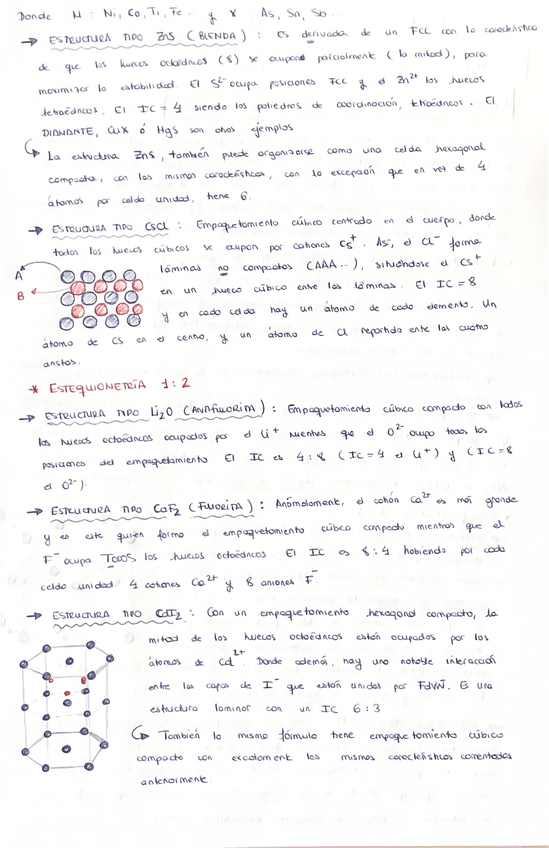 Donde M: Ni, Co, Ti, Fe... y X As, Sn, Sb...
→ ESTRUCTURA TIPO ZnS (BLENDA): Es derivada de un FCC con la característica
de que los huecos octaédricos (8) se ocupan parcialmente (la mitad), para
maximizar la estabilidad. El S²⁻ ocupa posiciones FCC y el Zn²⁺ los huecos
tetraédricos. El IC = 4 siendo los poliedros de coordinación, tetraédricos. El
DIAMANTE, CuX ó HgS son otros ejemplos
La estructura ZnS, también puede organizarse como una celda hexagonal
compacta, con las mismas características, con la excepción que en vez de 4
átomos por celda unidad, tiene 6.
→ ESTRUCTURA TIPO CsCl: Empaquetamiento cúbico centrado en el cuerpo, donde
todos los huecos cúbicos se ocupan por cationes Cs⁺. Así, el Cl⁻ forma
láminas no compactas (AAA...), situándose el Cs⁺
en un hueco cúbico entre las láminas. El IC = 8
y en cada celda hay un átomo de cada elemento. Un
átomo de Cs en el centro, y un átomo de Cl repartido entre las cuatro
aristas.
A
B
* ESTEQUIOMETRÍA 1:2
→ ESTRUCTURA TIPO Li₂O (ANTIFLUORITA): Empaquetamiento cúbico compacto con todos
los huecos octaédricos ocupados por el Li⁺ mientras que el O²⁻ ocupa todas las
posiciones del empaquetamiento. El IC es 4:8 (IC=4 el Li⁺) y (IC=8
el O²⁻).
→ ESTRUCTURA TIPO CaF₂ (FLUORITA): Anómalamente, el catión Ca²⁺ es más grande
y es este quien forma el empaquetamiento cúbico compacto mientras que el
F⁻ ocupa TODOS los huecos octaédricos. El IC es 8:4 habiendo por cada
celda unidad 4 cationes Ca²⁺ y 8 aniones F⁻
→ ESTRUCTURA TIPO CdI₂: Con un empaquetamiento hexagonal compacto, la
mitad de los huecos octaédricos están ocupados por los
átomos de Cd²⁺. Donde además, hay una notable interacción
entre las capas de I⁻ que están unidas por FdVW. Es una
estructura laminar con un IC 6:3
También la misma fórmula tiene empaquetamiento cúbico
compacto con exactamente las mismas características comentadas
anteriormente.